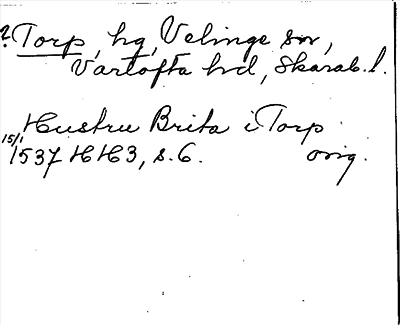 ? Torp, hg, Velinge sn,
Vartofta hd, Skarab. l.
Hustru Brita i Torp
15/1 1537 HH3, s. 6. orig.